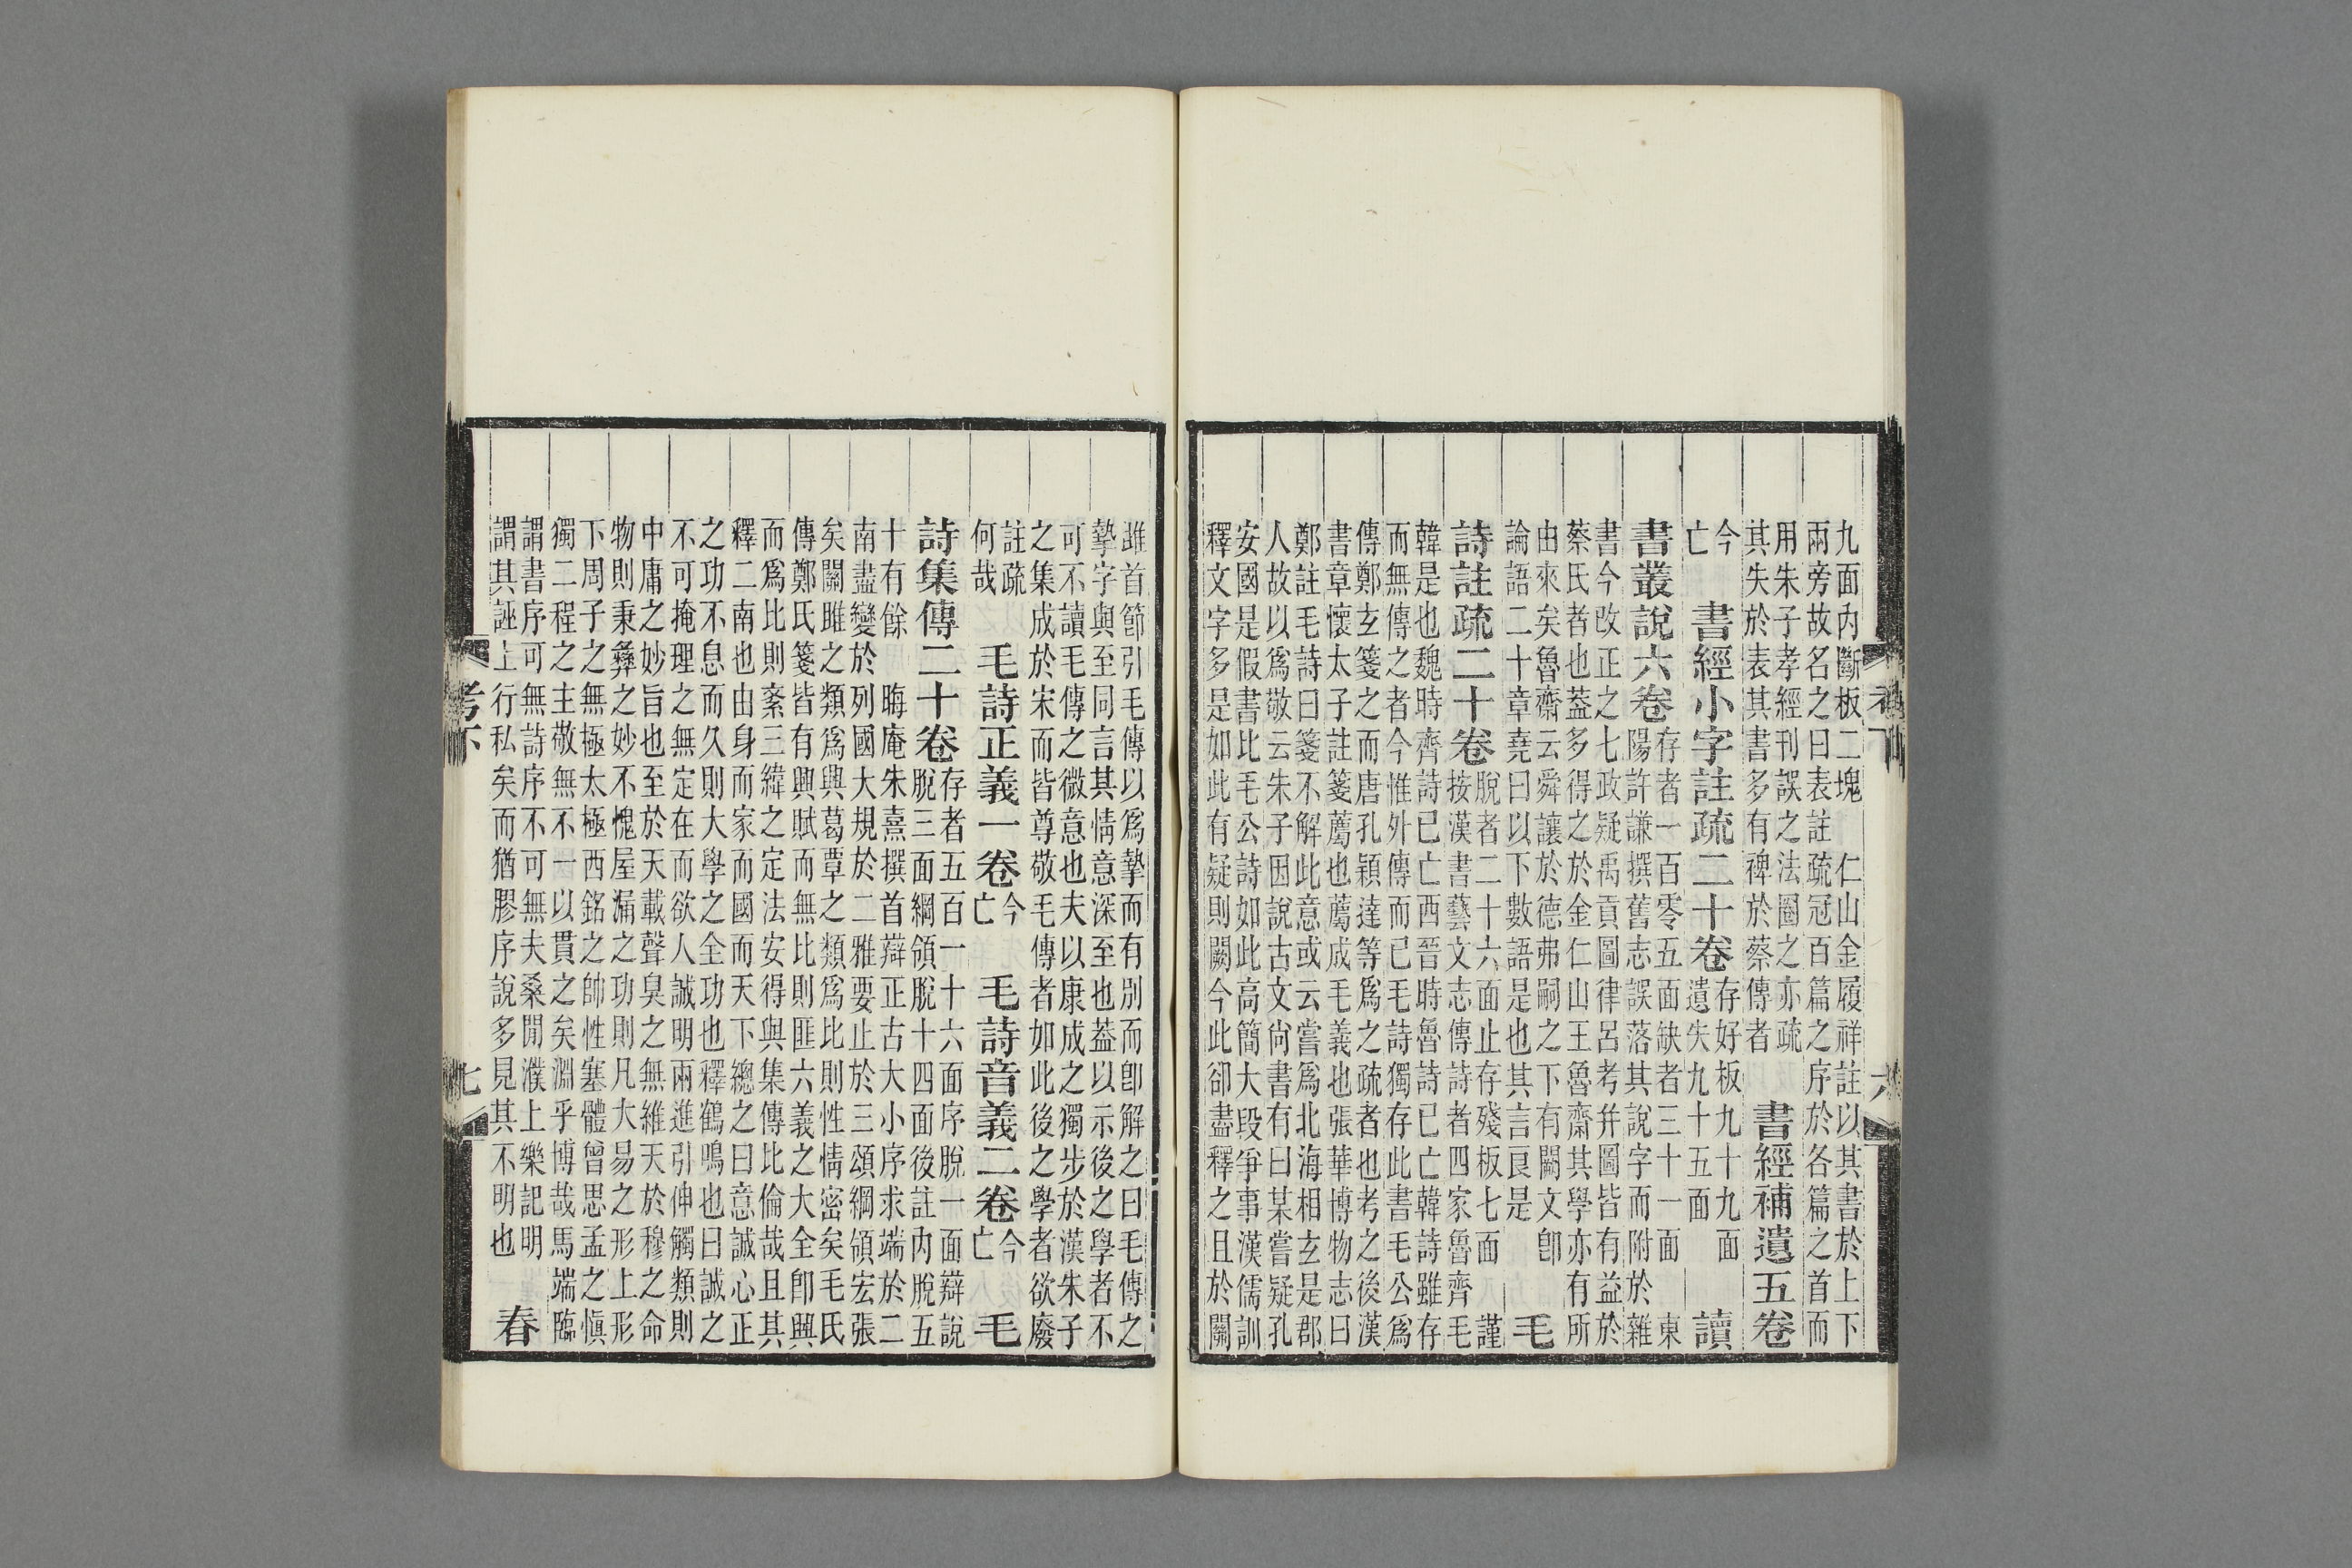 九面内斷板二塊　仁山金履祥註以其書於上下
兩旁故名之曰表註疏冠百篇之序於各篇之首而
用朱子孝經刊誤之法圈之亦疏
其失於表其書多有禆於蔡傳者
書經補遺五卷
今
亡
書經小字註疏二十卷
存好板九十九面
遺失九十五面
讀
書叢說六卷
存者一百零五面缺者三十一面　東
陽許謙撰舊志誤落其說字而附於雜
書今攺正之七政疑禹貢圖律呂考幷圖皆有益於
蔡氏者也葢多得之於金仁山王魯齋其學亦有所
由來矣魯齋云舜讓於德弗嗣之下有闕文卽
論語二十章堯曰以下數語是也其言良是
毛
詩註疏二十卷
脫者二十六面止存殘板七面　謹
按漢書藝文志傳詩者四家魯齊毛
韓是也魏時齊詩已亡西晉時魯詩已亡韓詩雖存
而無傳之者今惟外傳而已毛詩獨存此書毛公爲
傳鄭玄箋之而唐孔穎達等爲之疏者也考之後漢
書章懷太子註箋薦也薦成毛義也張華博物志曰
鄭註毛詩曰箋不解此意或云嘗爲北海相玄是郡
人故以爲敬云朱子因說古文尙書有曰某嘗疑孔
安國是假書比毛公詩如此高簡大段爭事漢儒訓
釋文字多是如此有疑則闕今此卻盡釋之且於關
雎首節引毛傳以爲摯而有別而卽解之曰毛傳之
摯字與至同言其情意深至也葢以示後之學者不
可不讀毛傳之微意也夫以康成之獨步於漢朱子
之集成於宋而皆尊敬毛傳者如此後之學者欲廢
註疏
何哉
毛詩正義一卷
今
亡
毛詩音義二卷
今
亡
毛
詩集傳二十卷
存者五百一十六面序脫一面辯說
脫三面綱領脫十四面後註内脫五
十有餘　晦庵朱熹撰首辯正古大小序求端於二
南盡變於列國大規於二雅要止於三頌綱領宏張
矣關雎之類爲興葛覃之類爲比則性情密矣毛氏
傳鄭氏箋皆有興賦而無比則匪六義之大全卽興
而爲比則紊三緯之定法安得與集傳比倫哉且其
釋二南也由身而家而國而天下緫之曰意誠心正
之功不息而久則大學之全功也釋鶴鳴也曰誠之
不可掩理之無定在而欲人誠明兩進引伸觸類則
中庸之妙旨也至於天載聲臭之無維天於穆之命
物則秉彝之妙不愧屋漏之功則凡大易之形上形
下周子之無極太極西銘之帥性塞體曾思孟之愼
獨二程之主敬無不一以貫之矣淵乎博哉馬端臨
謂書序可無詩序不可無夫桑閒濮上樂記明
謂其誣上行私矣而猶膠序說多見其不明也
春
考下
七
六